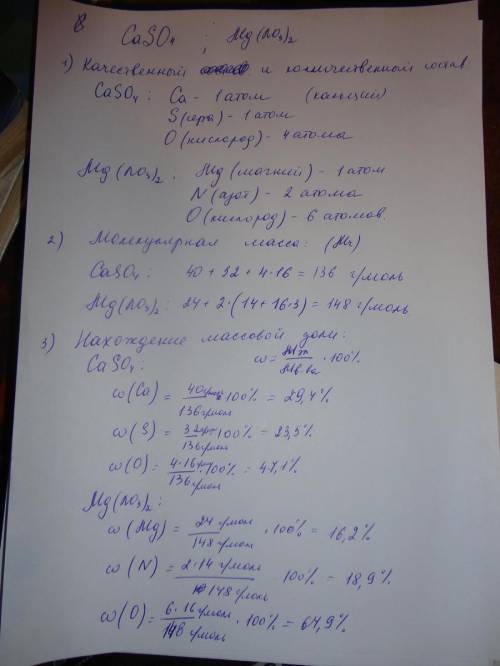 8
CaSO4 ; Mg(NO3)2
1) Качественный и количественный состав
CaSO4: Ca - 1 атом (кальций)
S (сера) - 1 атом
O (кислород) - 4 атома
Mg(NO3)2. Mg (магний) - 1 атом
N (азот) - 2 атома
O (кислород) - 6 атомов.
2) Молекулярная масса: (Mr)
CaSO4: 40 + 32 + 4·16 = 136 г/моль
Mg(NO3)2: 24 + 2·(14 + 16·3) = 148 г/моль
3) Нахождение массовой доли:
CaSO4: ω = · 100%
ω(Ca) = 40 / 136 г/моль · 100% = 29,4%
ω(S) = 32 / 136 г/моль · 100% = 23,5%
ω(O) = 4·16 / 136 г/моль · 100% = 47,1%
Mg(NO3)2:
ω(Mg) = 24 г/моль / 148 г/моль · 100% = 16,2%
ω(N) = 2·14 г/моль / 148 г/моль · 100% = 18,9%
ω(O) = 6·16 г/моль / 148 г/моль · 100% = 64,9%